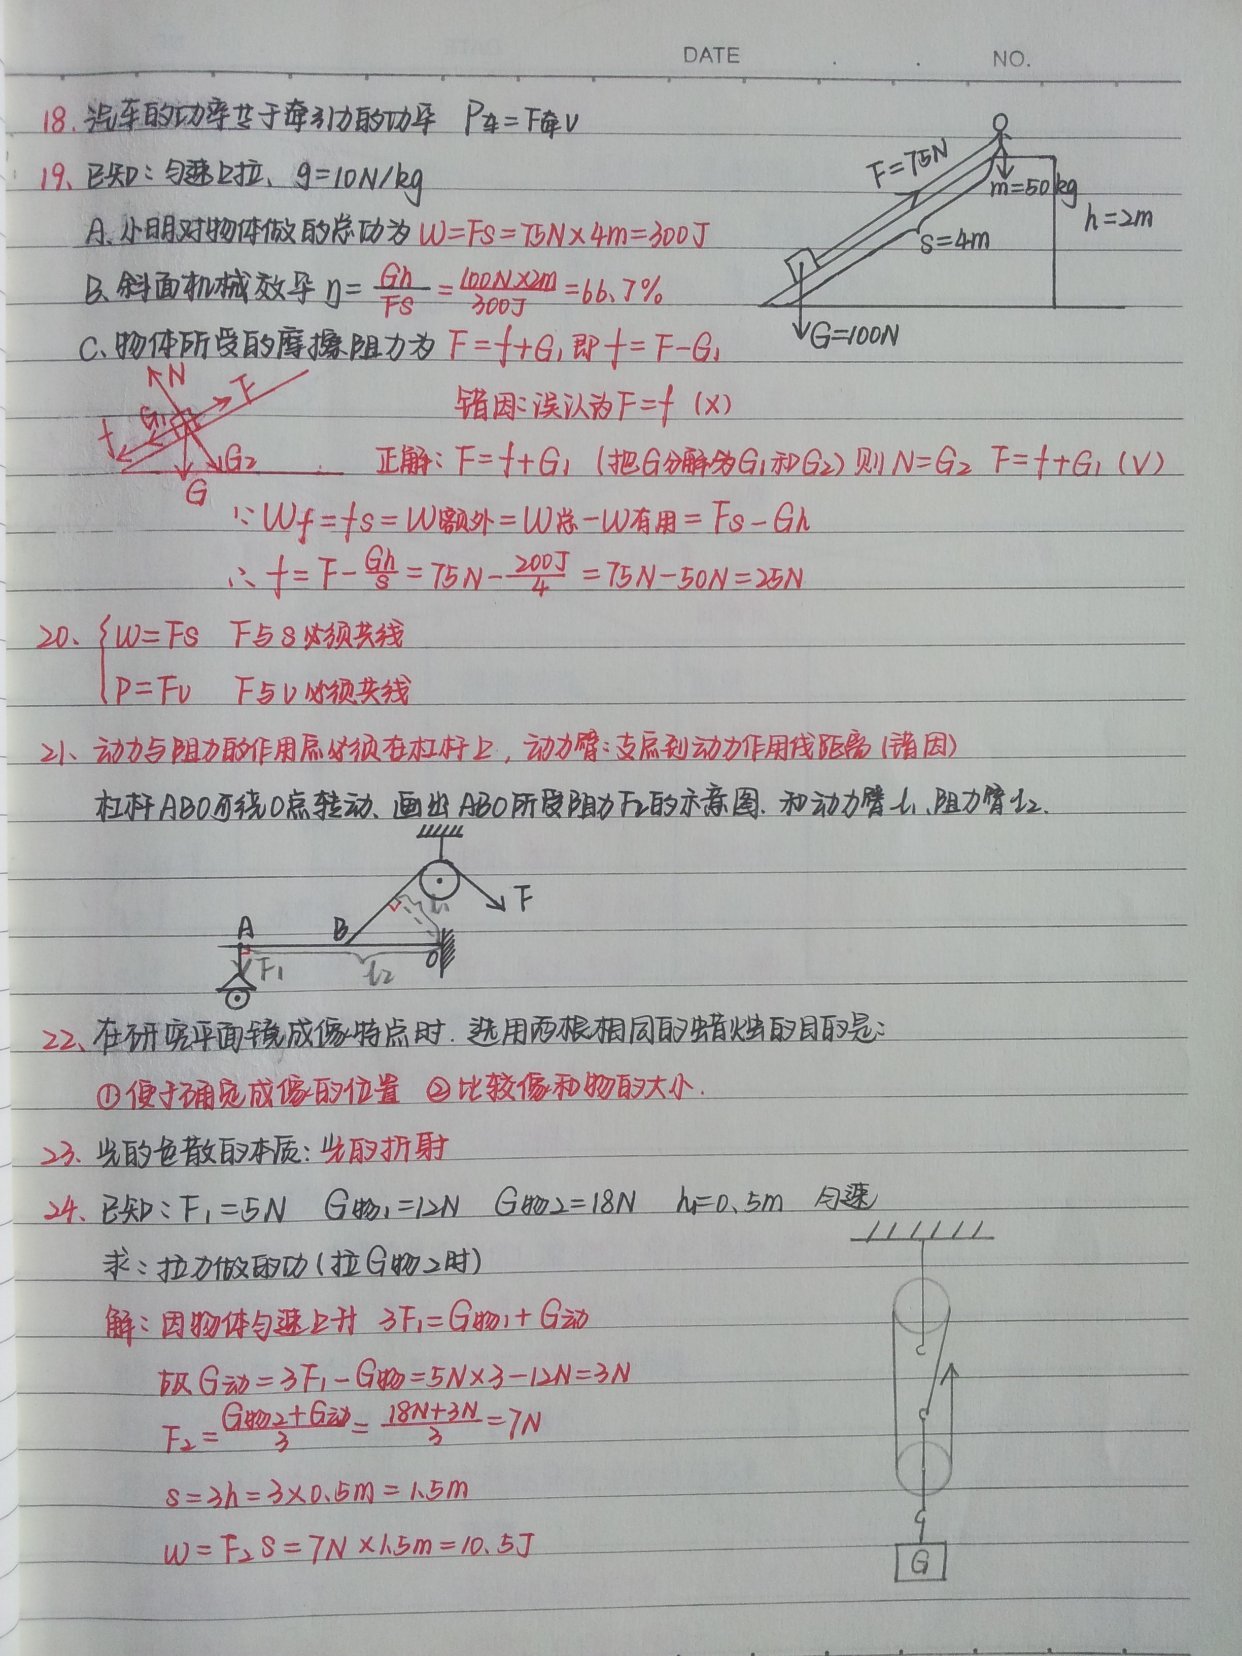 DATE . . NO.
18. 汽车的功率等于牵引力的功率 P车=F牵v
19、已知：匀速上拉、g=10N/kg
F=75N
m=50kg
h=2m
s=4m
G=100N
A、小明对物体做的总功为 W=Fs=75N×4m=300J
B、斜面机械效率 η=Gh/Fs=100N×2m/300J=66.7%
C、物体所受的摩擦阻力为 F=f+G₁即f=F-G₁
错因：误认为F=f (×)
N F G₁ f G₂ G
正解：F=f+G₁ (把G分解为G₁和G₂) 则N=G₂ F=f+G₁ (√)
∵Wf=fs=W额外=W总-W有用=Fs-Gh
∴f=F-Gh/s=75N-200J/4=75N-50N=25N
20、{W=Fs F与s必须共线
P=Fv F与v必须共线
21、动力与阻力的作用点必须在杠杆上，动力臂：支点到动力作用线距离(错因)
杠杆ABO可绕O点转动、画出ABO所受阻力F₂的示意图.和动力臂l₁、阻力臂l₂.
F
l₁
A B O
F₁ l₂
22、在研究平面镜成像特点时.选用两根相同的蜡烛的目的是：
①便于确定成像的位置 ②比较像和物的大小.
23、光的色散的本质：光的折射
24、已知：F₁=5N G物₁=12N G物₂=18N h=0.5m 匀速
求：拉力做的功(拉G物₂时)
解：因物体匀速上升 3F₁=G物₁+G动
故G动=3F₁-G物=5N×3-12N=3N
F₂=G物₂+G动/3=18N+3N/3=7N
s=3h=3×0.5m=1.5m
W=F₂s=7N×1.5m=10.5J
G